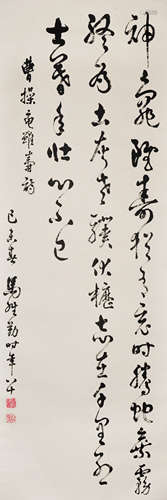 神龜雖壽猶有竟時騰蛇乘霧
終為土灰老驥伏櫪志在千里烈
士暮年壯心不已
曹操龜雖壽詩
春馬時年八十